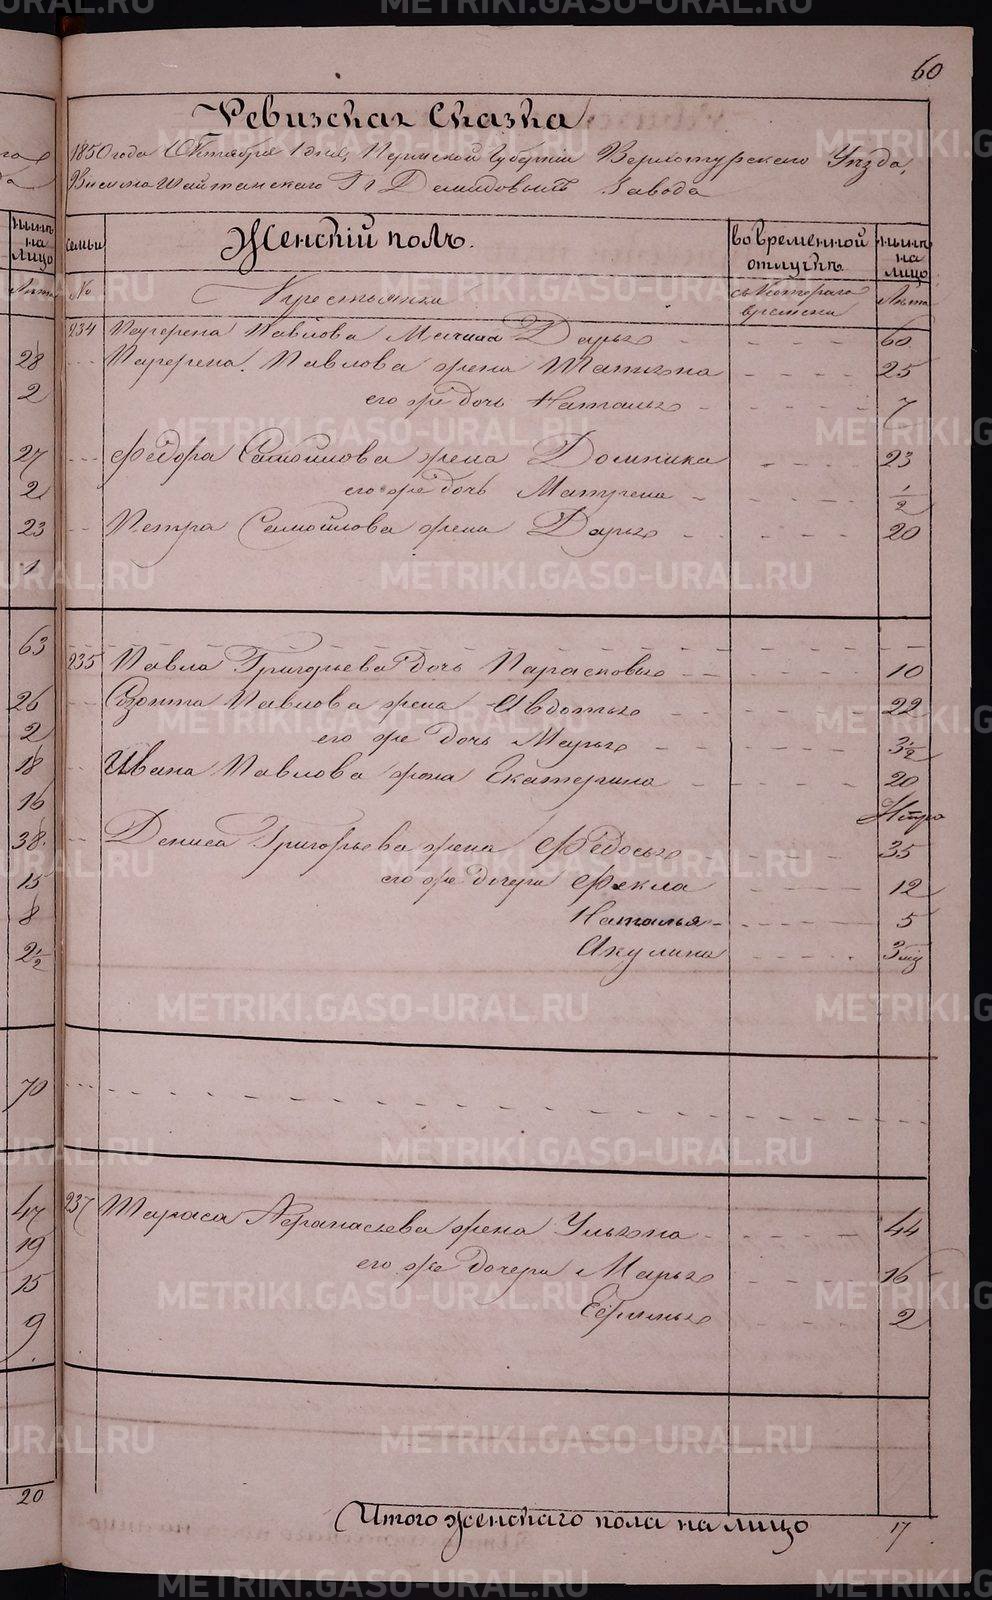 60
Ревизская Сказка
1850 года Октября 1 дня, Пермской Губернiи Верхотурскаго Уѣзда,
Висимо Шайтанскаго Гг Демидовыхъ Завода
нынѣ на лицо
семьи
Женскiй полъ.
во временной отлучкѣ
нынѣ на лицо
Лѣта
№
Крестьянки
съ котораго времени
Лѣта
234 Павлова Мачиха Дарья 60
28
Павлова жена Татьяна 25
2
его же дочь Наталья 7
27
Федора Самойлова жена Домника 23
2
его же дочь 1/2
23
Петра Самойлова жена Дарья 20
1
63
235 Павла Григорьева дочь Парасковья 10
26
Созонта Павлова жена Авдотья 22
2
его же дочь Марья 3 1/2
18
Ивана Павлова жена Екатерина 20
16
38
Дениса Григорьева жена Федосья 35
15
его же дочери Фекла 12
8
Наталья 5
2 1/2
Акулина 3 мц
70
47
237 Тараса Афанасьева жена Ульяна 44
19
15
его же дочери Марья 16
9
Ефимья 2
20
Итого женскаго пола на лицо 17
METRIKI.GASO-URAL.RU